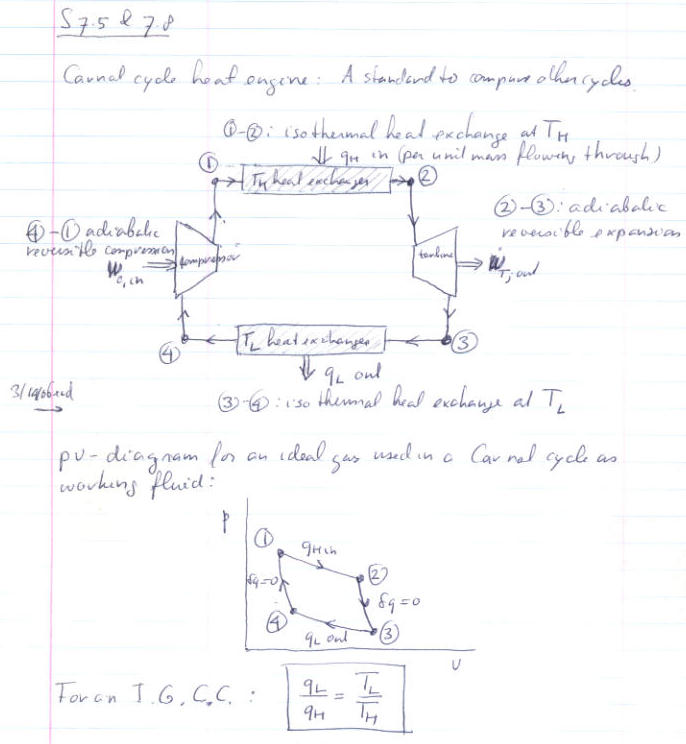 S 7.5 & 7.8
Carnot cycle heat engine: A standard to compare other cycles.
①-②: isothermal heat exchange at T_H
q_H in (per unit mass flowing through)
①
T_H heat exchanger
②
②-③: adiabatic
reversible expansion
④-① adiabatic
reversible compression
Ẇ_c, in
compressor
turbine
Ẇ_T, out
④
T_L heat exchanger
③
q_L out
③-④: isothermal heat exchange at T_L
pv-diagram for an ideal gas used in a Carnot cycle as
working fluid:
p
①
q_H in
②
δq=0
δq=0
④
q_L out
③
v
For an I.G.C.C.: q_L/q_H = T_L/T_H